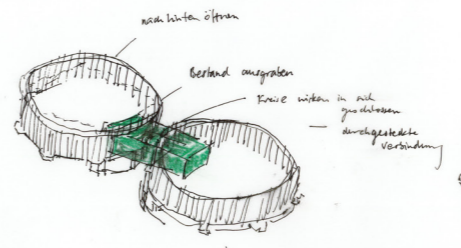 nach hinten öffnen
Bestand ausgraben
Kreise wirken in sich
geschlossen
— durchgesteckte
Verbindung